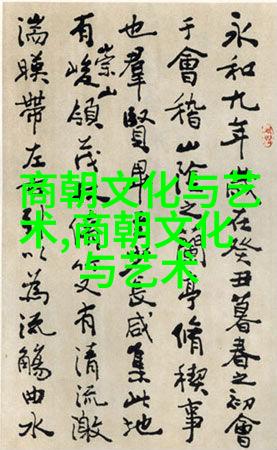 商朝文化与艺
术,商朝文化
与艺术
永和九年在癸丑暮春之初會
于會稽山陰之蘭亭脩稧事
也羣賢畢長咸集此地
有崇山峻領茂脩竹又有清流激
湍暎帶左引以為流觴曲水